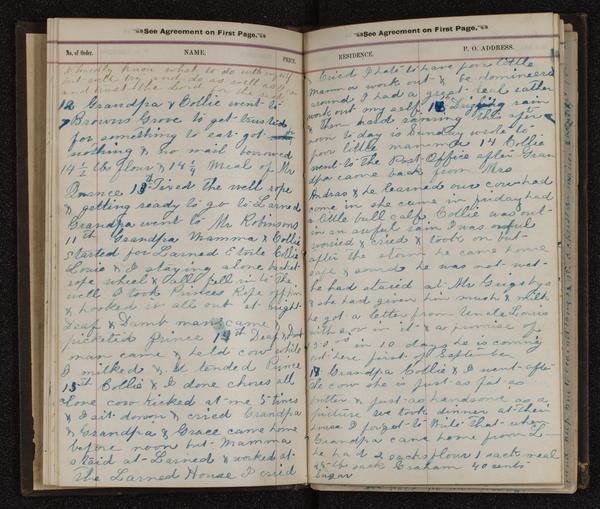 See Agreement on First Page.
No. of Order. NAME. PRICE.
hardly know what to do with myself
but will try and do as well as I can
and trust the Lord for the rest
12 Grandpa & Collie went to
Browns Grove to get trusted
for something to eat got
nothing & no mail borrowed
14 1/2 lb flour & 14 1/4 meal of Mr
Prance 13th Fixed the well rope
& getting ready to go to Larned
Grandpa went to Mr Robinsons
11th Grandpa Mamma & Collie
started for Larned Etoile Ellie
Louie & I staying alone bucket
rope wheel & all fell in the
well I took Princes Rope off him
& hooked it all out at night
Deaf & Dumb man came &
picketed Prince 14th Deaf & Dumb
man came & held cow while
I milked & tended Prince
15th Collie & I done chores all
alone cow kicked at me 5 times
& I sit down & cried Grandpa
& Grandpa & Grace came home
before noon but Mamma
staid at Larned & worked at
the Larned House I cried
See Agreement on First Page.
RESIDENCE. P. O. ADDRESS.
& cried I hate to have poor little
Mamma work out & be domineered
around I had a great deal rather
work out my self 13 Drizzling rain
& then hard raining this after
noon to day is Sunday wrote to
poor little mamma 14 Collie
went to the Post Office after Gran
dpa came back from Mrs
Andras & he learned our cow had
come in she came in Friday had
a little bull calf Collie was out
in an awful rain I was awful
worried & cried & took on but
after the storm he came home
safe & sound he was not wet
he had staied at Mr Grigsbys
& she had given him mush & milk
he got a letter from Uncle Louis
with in it & a promise of
in 10 days he is coming
out here first of September
18 Grandpa Collie & I went after
the cow she is just as fat as
butter & just as handsome as a
picture we took dinner at their
house I forgot to write that when
Grandpa came home from L
he had 2 sacks flour 1 sack meal
sack Graham 40 cents
sugar